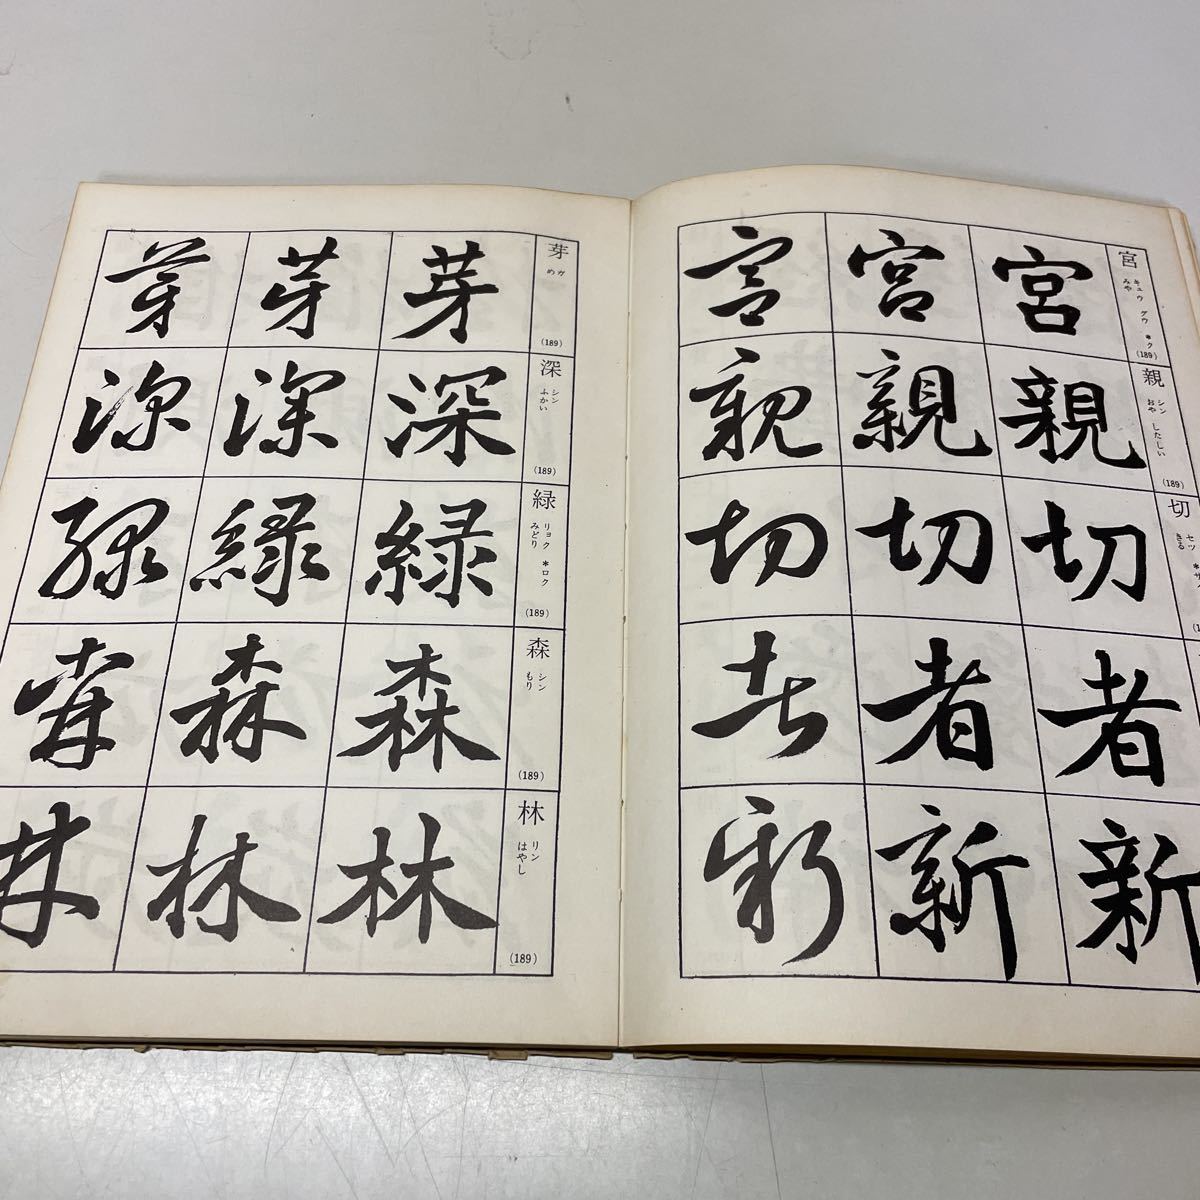 宮 キュウ グウ *ク みや (189)
宮 宮 宮
親 シン おや したしい (189)
親 親 親
切 セツ *サ きる
切 切 切
者 者 者
新 新 新
芽 ガ め (189)
芽 芽 芽
深 シン ふかい (189)
深 深 深
緑 リョク *ロク みどり (189)
緑 緑 緑
森 シン もり (189)
森 森 森
林 リン はやし (189)
林 林 林